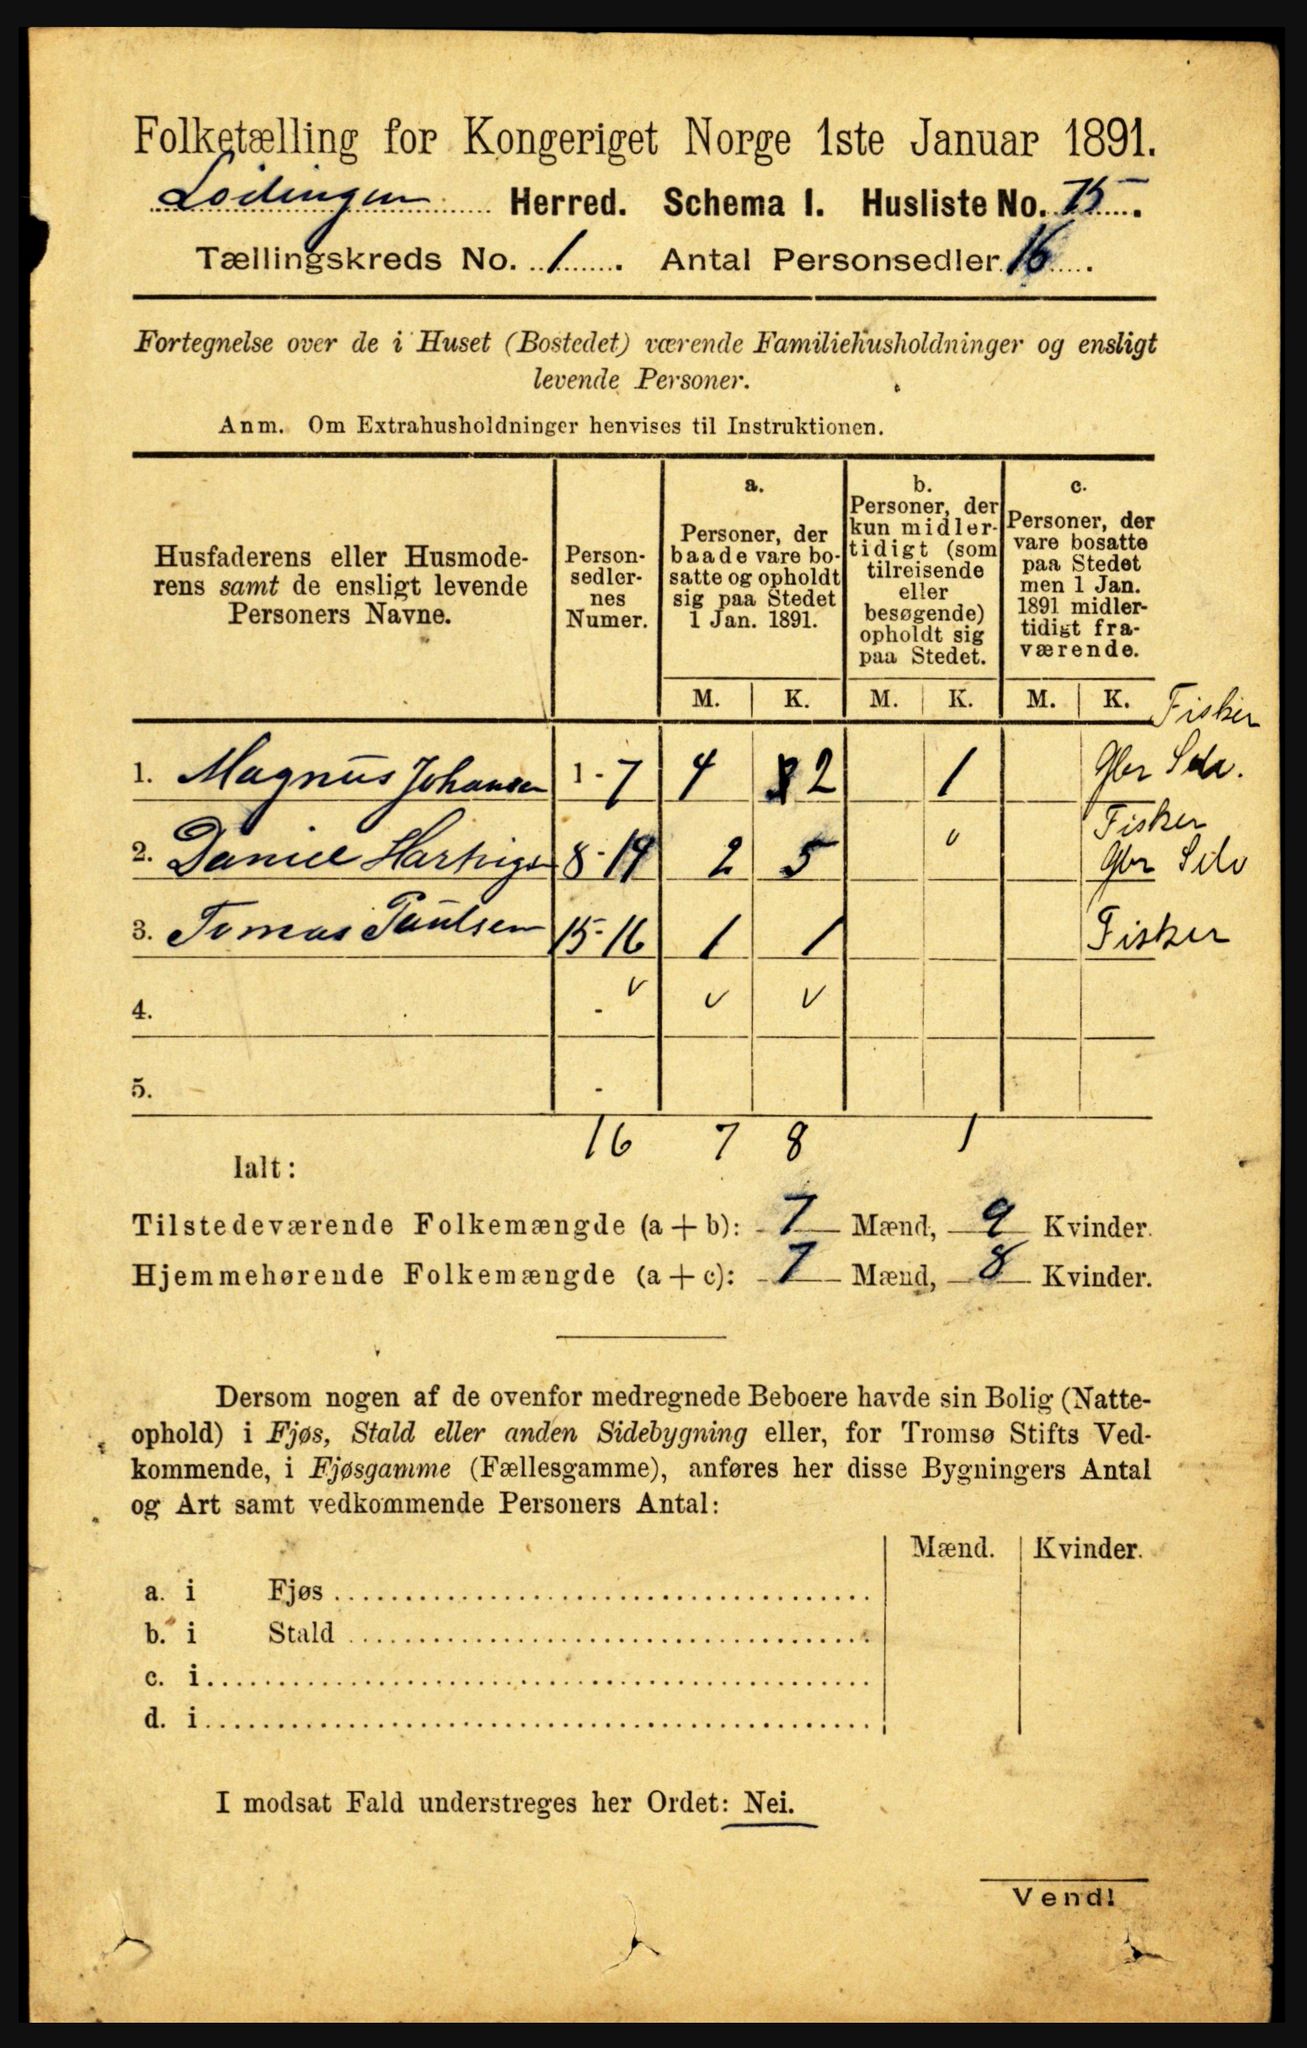 Folketælling for Kongeriget Norge 1ste Januar 1891.
Lødingen Herred. Schema I. Husliste No. 75.
Tællingskreds No. 1. Antal Personsedler 16.
Fortegnelse over de i Huset (Bostedet) værende Familiehusholdninger og ensligt
levende Personer.
Anm. Om Extrahusholdninger henvises til Instruktionen.
Husfaderens eller Husmode-
rens samt de ensligt levende
Personers Navne.
Person-
sedler-
nes
Numer.
a.
Personer, der
baade vare bo-
satte og opholdt
sig paa Stedet
1 Jan. 1891.
b.
Personer, der
kun midler-
tidigt (som
tilreisende
eller
besøgende)
opholdt sig
paa Stedet.
c.
Personer, der
vare bosatte
paa Stedet
men 1 Jan.
1891 midler-
tidigt fra-
værende.
M. K. M. K. M. K.
Fisker
1. Magnus Johansen 1-7 4 2 1 Gbr Selv.
Fisker
2. Daniel Hartvigs 8-14 2 5 Gbr Selv
3. Tomas Paulsen 15-16 1 1 Fisker
4. -
5. -
16 7 8 1
Ialt:
Tilstedeværende Folkemængde (a + b): 7 Mænd, 9 Kvinder.
Hjemmehørende Folkemængde (a + c): 7 Mænd, 8 Kvinder.
Dersom nogen af de ovenfor medregnede Beboere havde sin Bolig (Natte-
ophold) i Fjøs, Stald eller anden Sidebygning eller, for Tromsø Stifts Ved-
kommende, i Fjøsgamme (Fællesgamme), anføres her disse Bygningers Antal
og Art samt vedkommende Personers Antal:
Mænd. Kvinder.
a. i Fjøs
b. i Stald
c. i
d. i
I modsat Fald understreges her Ordet: Nei.
Vend!